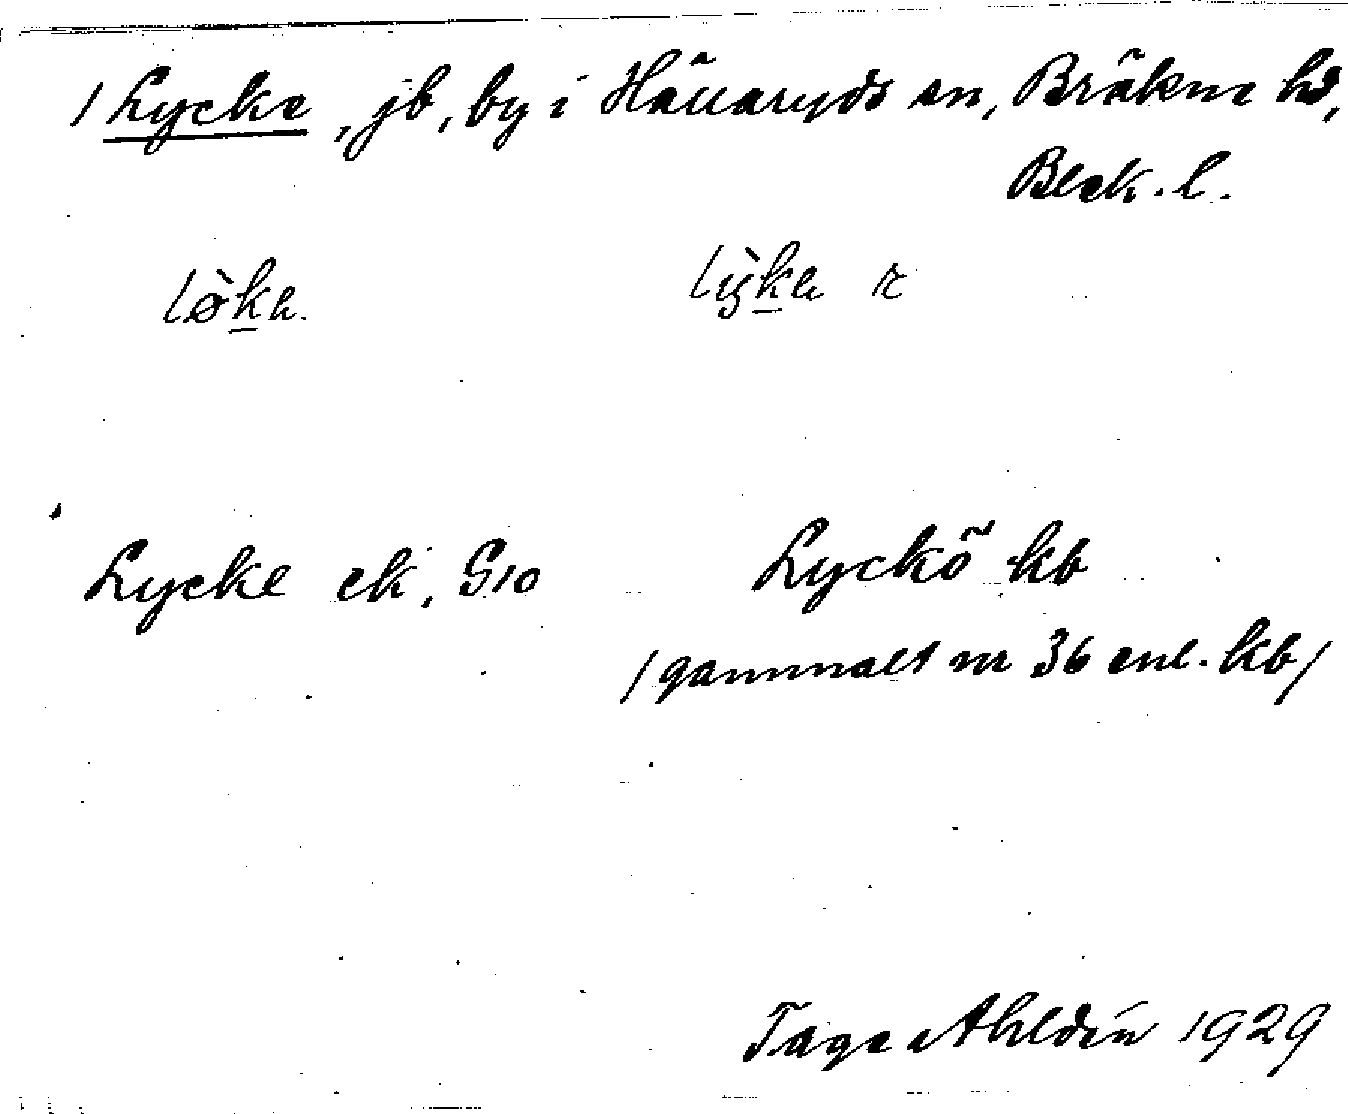 1 Lycke, jb, by i Hällaryds sn, Bräkne hd,
Blek. l.
lø̀ka. lỳka r
Lycke ek, S10 Lyckö kb
/gammalt nr 36 enl. kb/
Tage Ahldén 1929